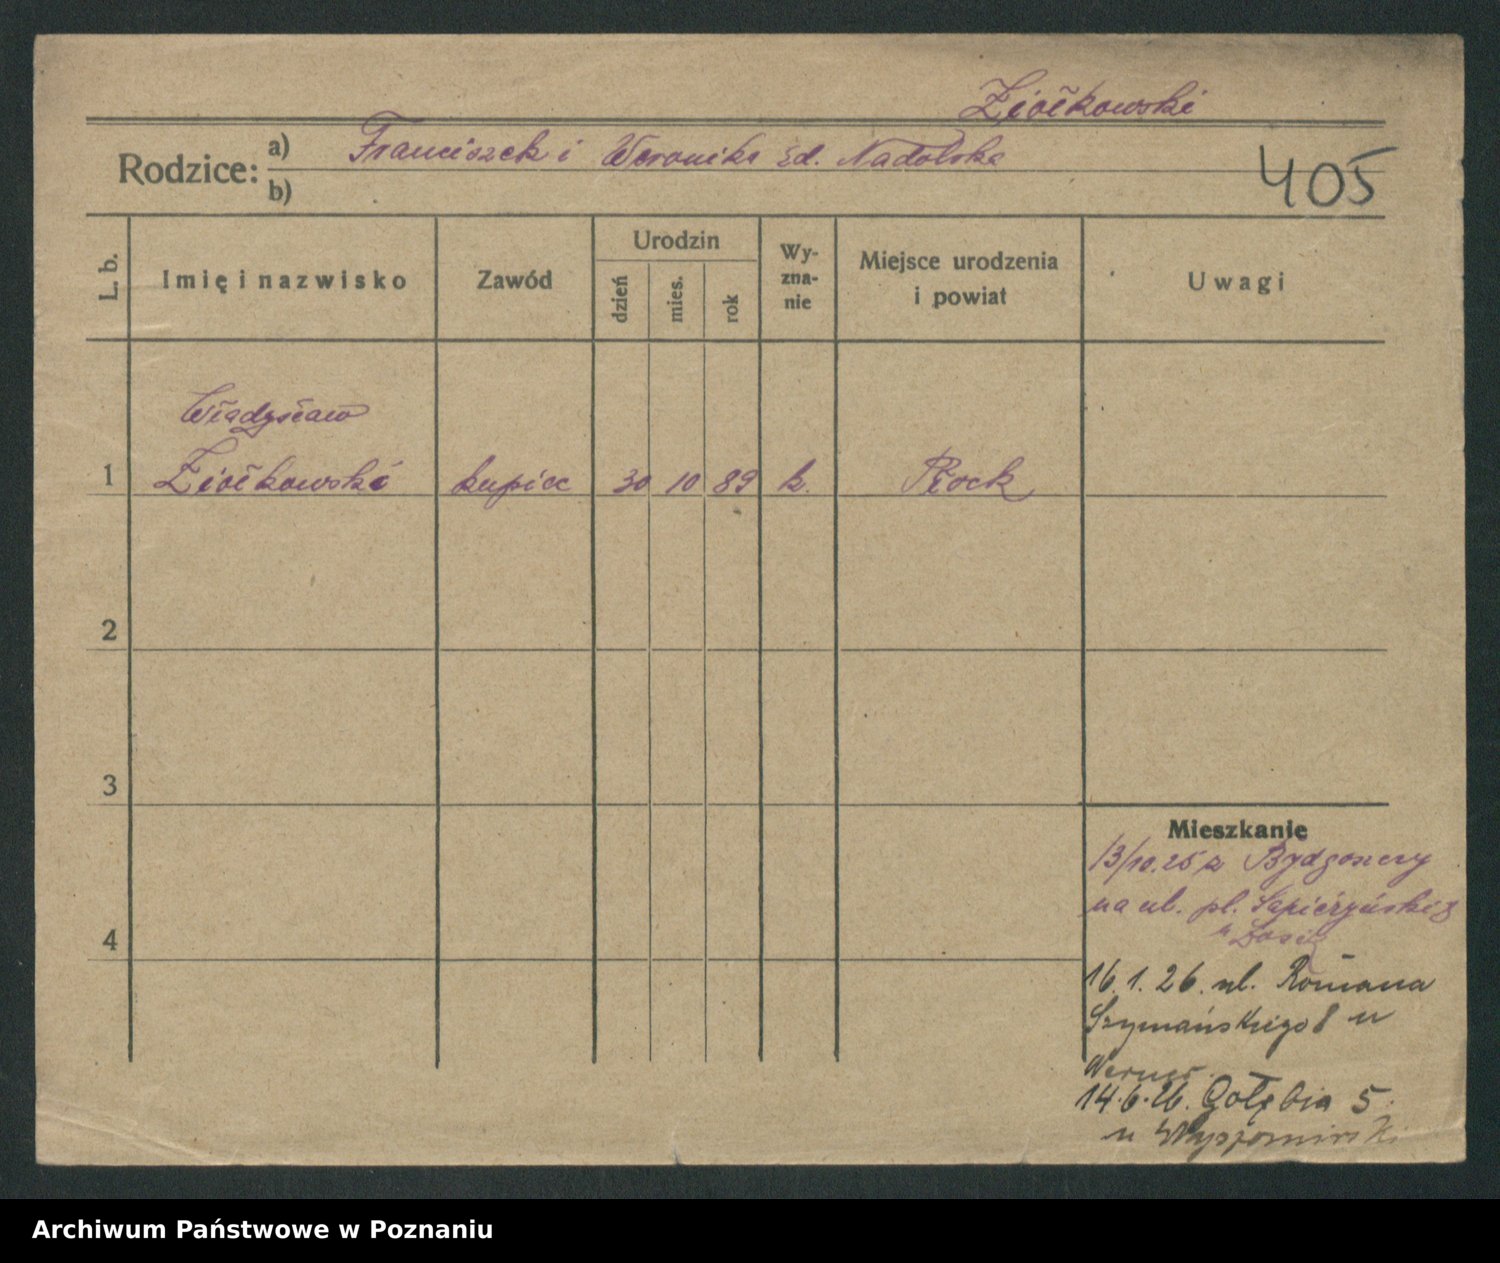 Ziółkowski
Rodzice: a) Franciszek i Weronika zd. Nadolska
b)
405
L. b. Imię i nazwisko Zawód Urodzin dzień mies. rok Wy-zna-nie Miejsce urodzenia i powiat Uwagi
Władysław
1 Ziółkowski kupiec 30 10 89 k. Płock
2
3
4
Mieszkanie
13/10.25 z Bydgoszczy
na ul. pl. Sapieżyński
16.1.26. ul. Romana
Szymańskiego 8 u
Werner.
14.6.26. Gołębia 5.
u Wyszomirski
Archiwum Państwowe w Poznaniu